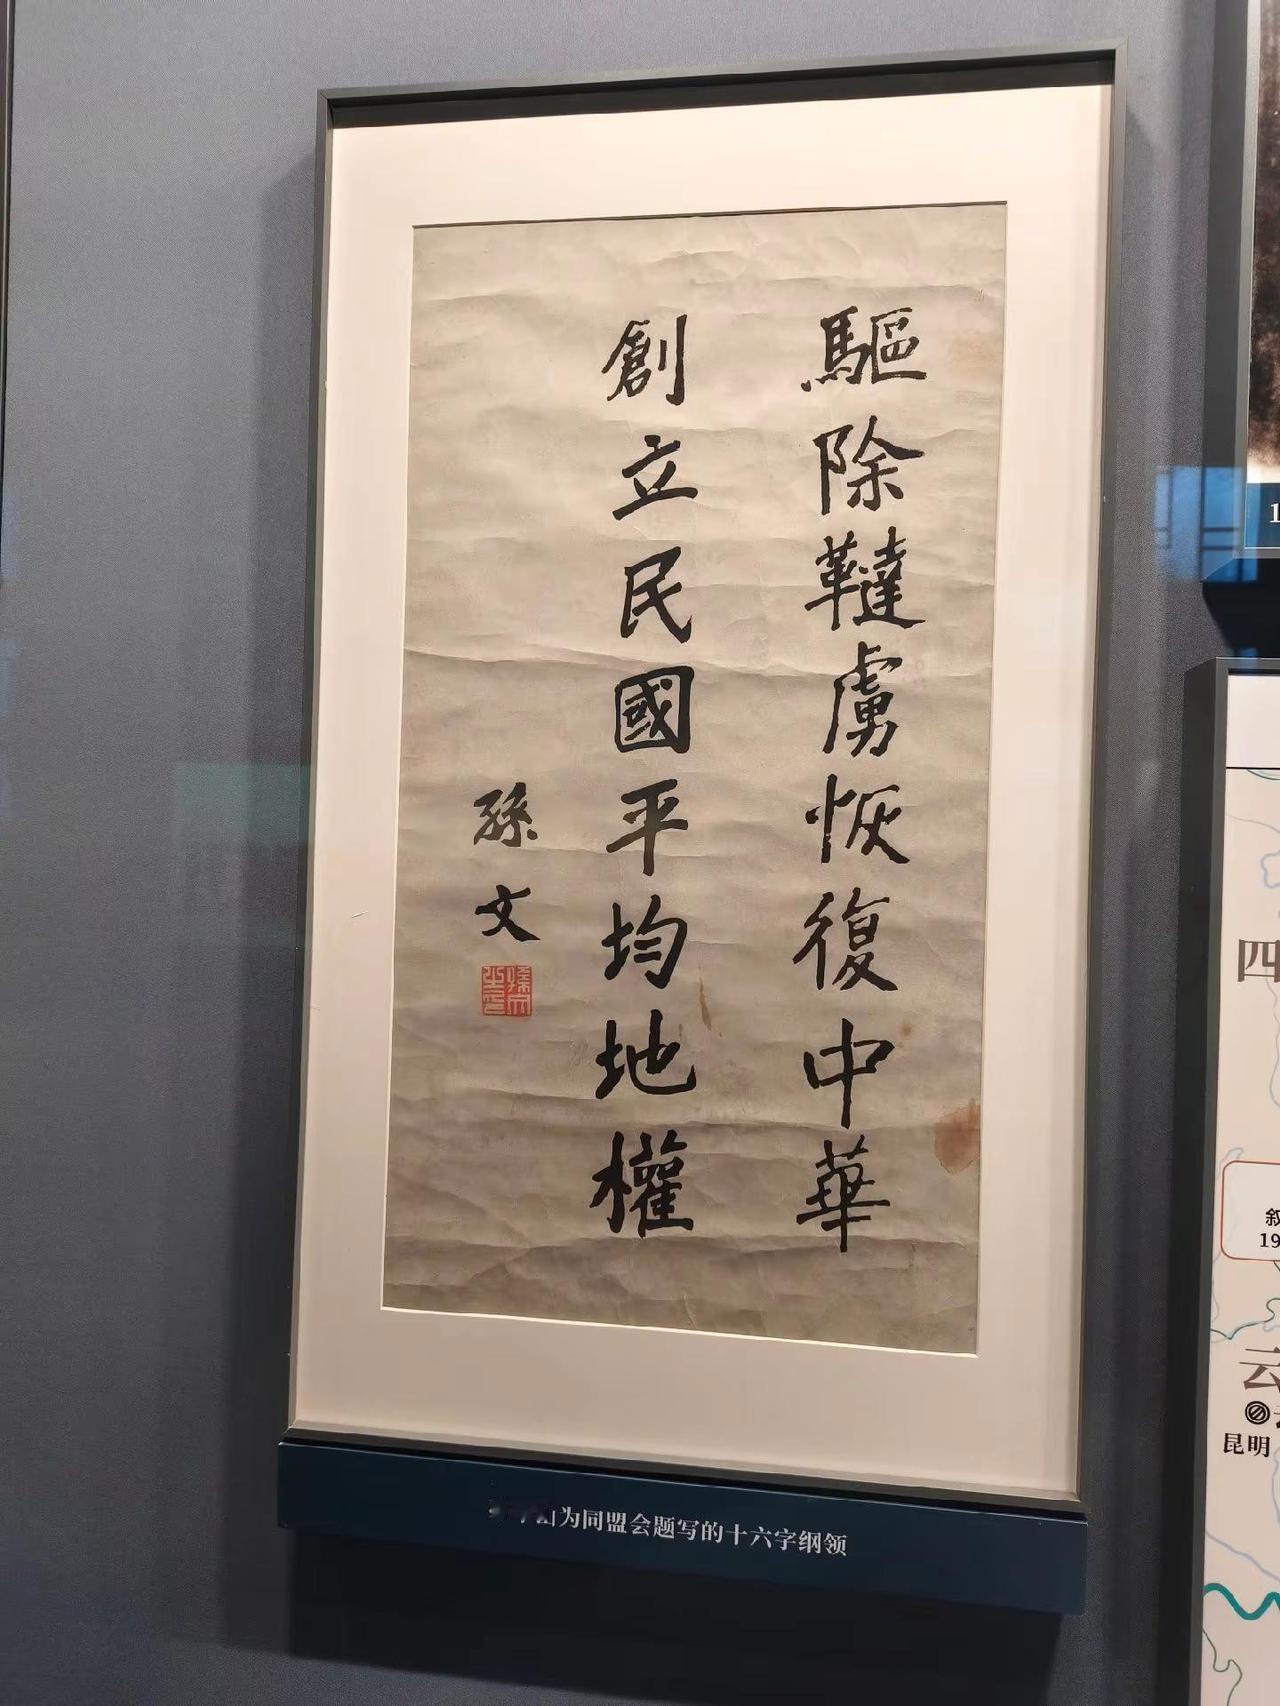 驅除韃虜恢復中華
創立民國平均地權
孫文
孫文之印
山为同盟会题写的十六字纲领
1
四
叙
19
云
昆明